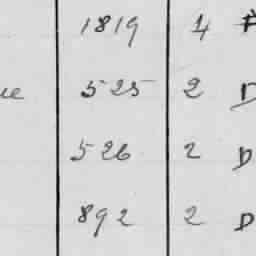 1819 4 F
ue 525 2 D
526 2 D
892 2 D